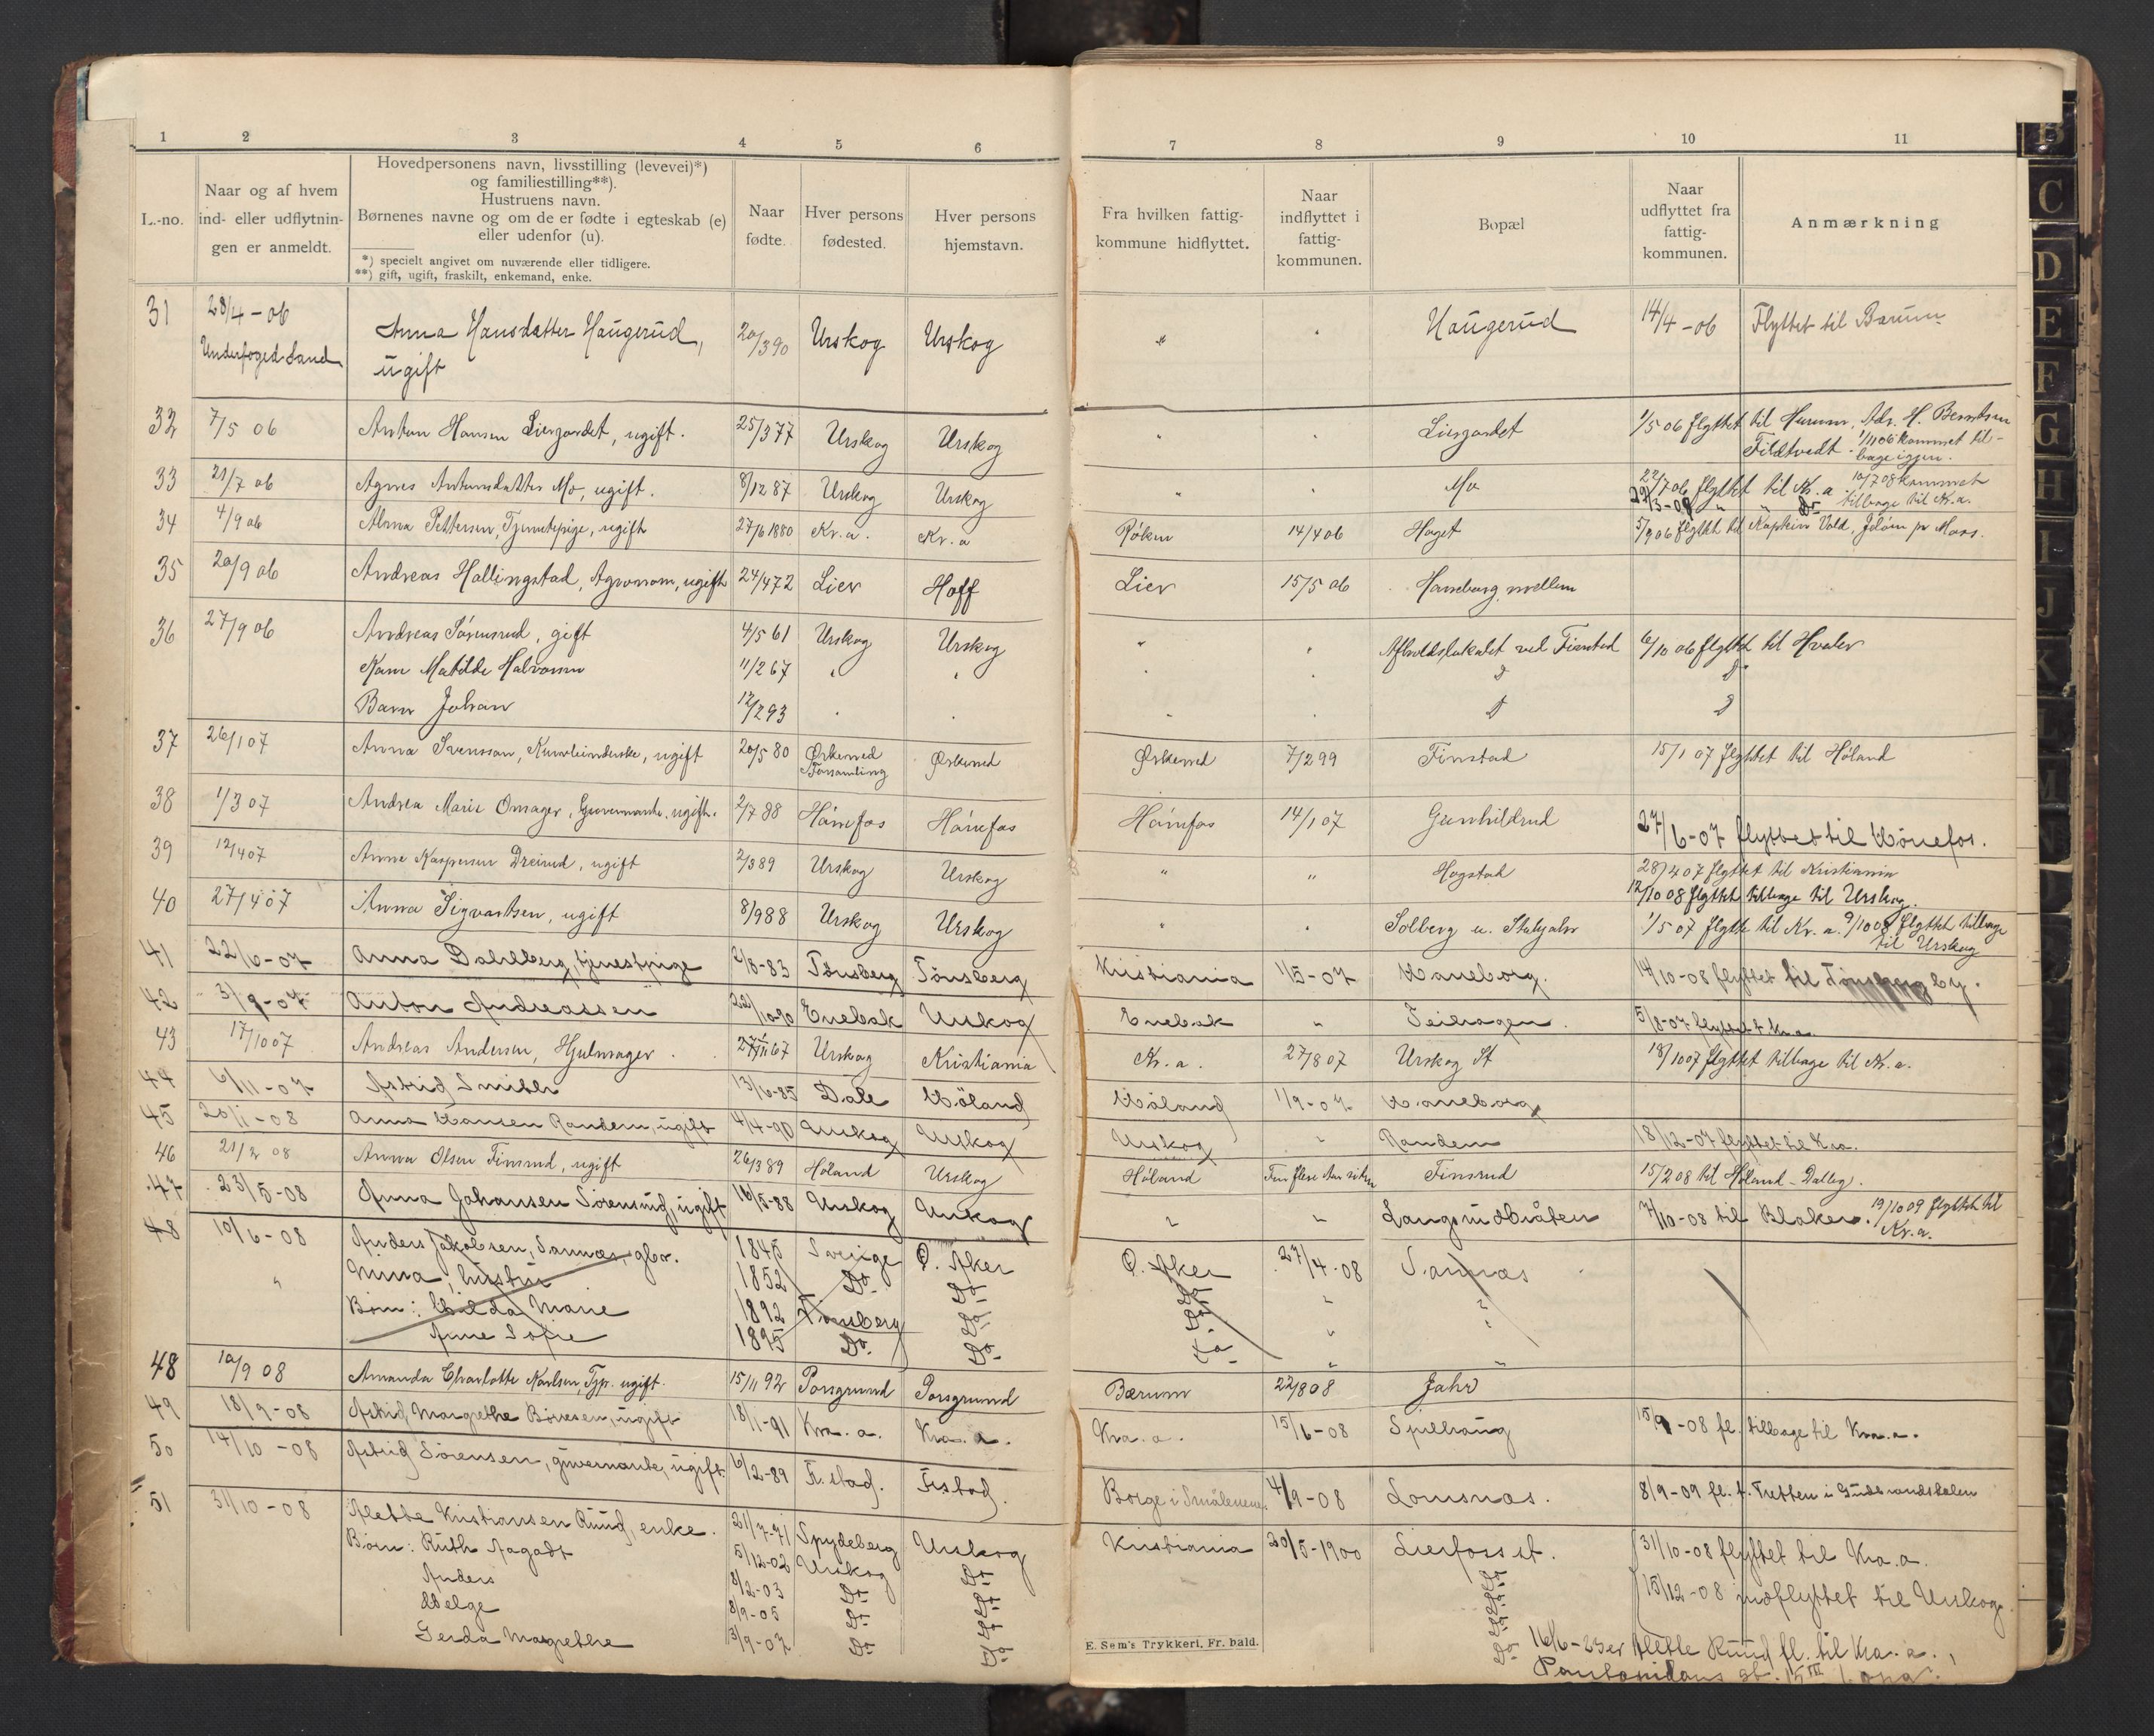 1 2 3 4 5 6 7 8 9 10 11
L.-no.
Naar og af hvem
ind- eller udflytnin-
gen er anmeldt.
Hovedpersonens navn, livsstilling (levevei)*)
og familiestilling**).
Hustruens navn.
Børnenes navne og om de er fødte i egteskab (e)
eller udenfor (u).
*) specielt angivet om nuværende eller tidligere.
**) gift, ugift, fraskilt, enkemand, enke.
Naar
fødte.
Hver persons
fødested.
Hver persons
hjemstavn.
Fra hvilken fattig-
kommune hidflyttet.
Naar
indflyttet i
fattig-
kommunen.
Bopæl
Naar
udflyttet fra
fattig-
kommunen.
Anmærkning
31 28/4 - 06 Anna Hansdatter Haugerud, 20/3 90 Urskog Urskog " " Haugerud 14/4 - 06 Flyttet til Bærum
Underfoged Sand ugift
32 7/5 06 Anton Hansen Liergardet, ugift. 25/3 77 Urskog Urskog " " Liergardet 1/5 06 flyttet til Hurum, Adr. H. Berntsen
1/11 06 kommet til-
bage igjen.
33 21/7 06 Agnes Antonsdatter Mo, ugift. 8/12 87 Urskog Urskog " " Mo 22/7 06 flyttet til Kr. a 10/7 08 kommet
tilbage til Kr.a.
34 4/9 06 Alma Pettersen, Tjenestepige, ugift 27/6 1880 Kr. a. Kr. a Røken 14/4 06 Haget 5/9 06 flyttet til Kaptein Vold, Jeløen pr Moss.
35 20/9 06 Andreas Hallingstad, Agronom, ugift 24/4 72 Lier Hoff Lier 15/5 06 Haneborg mellem
36 27/9 06 Andreas Sørensrud, gift 4/5 61 Urskog Urskog " " Afholdslokalet ved Finstad 6/10 06 flyttet til Hvaler
Kone Matilde Halvorsen 11/2 67 " "
Barn Johan 12/2 93 " "
37 26/1 07 Anna Svensson, Kunstvinderske, ugift 20/5 80 Ørkened Ørkened Ørkened 7/2 99 Finstad 15/1 07 flyttet til Høland
Forsamling
38 1/3 07 Andrea Marie Onsager, Guvernante, ugift. 2/7 88 Hønefos Hønefos Hønefos 14/1 07 Gunhildrud 27/6 - 07 flyttet til Hönefos.
39 12/4 07 Anne Kaspersen Dreirud, ugift 2/3 89 Urskog Urskog " " Hogstad 28/4 07 flyttet til Kristiania
12/10 08 flyttet tilbage til Urskog.
40 27/4 07 Anna Sigvartsen, ugift 8/9 88 Urskog Urskog " " Solberg u. 1/5 07 flytte til Kr. a. 9/10 08 flyttet tilbage
til Urskog
41 22/6 - 07 Anna Dahlberg, tjenestpige 2/8 - 83 Tønsberg Tönsberg Kristiania 1/5 - 07 Haneborg. 14/10 - 08 flyttet til Tönsberg by.
42 3/9 - 07 Anton Andreassen 22/10 - 90 Enebak Urskog Enebak " 5/8 - 07 flyttet t. Kr.a.
43 17/10 07 Andreas Andersen, Hjulmager 67 Urskog Kristiania Kr. a. 27/8 07 Urskog St 18/10 07 flyttet tilbage til Kr. a.
44 6/11 - 07 Astrid Smith 13/6 - 85 Dale Höland Höland 1/9 - 07 Haneborg
45 20/1 - 08 Anna Hansen Randem, ugift 4/4 - 90 Urskog Urskog Urskog " Randem 18/12 - 07 flyttet til Kra.
46 21/2 08 Anna Olsen Finsrud, ugift 26/3 89 Høland Urskog Høland For flere aar siden Finsrud 15/2 08 til Høland - Dalleg.
47 23/5 - 08 Anna Johansen Sörensrud, ugift 16/5 - 88 Urskog Urskog " " Langsrudbråten 7/10 - 08 til Blaker. 19/10 09 flyttet til
Kr. a.
48 10/6 - 08 Anders Jakobsen, Sannæs, gbr. 1845 Sverige Ø. Aker Ø. Aker 27/4 - 08 Sannæs
" Anna, hustru 1852 Do Do Do " "
Børn: Hilda Marie 1892 Tønsberg Do Do " "
Anne Sofie 1895 Do Do Do " "
48 10/9 08 Amanda Charlotte Karlsen, Tjp. ugift. 15/11 92 Porsgrund Porsgrund Bærum 22/8 08 Jahr
49 18/9 - 08 Astrid Margrethe Böresen, ugift 18/1 - 91 Kra. a. Kra. a. Kra. a. 15/6 - 08 Spilhaug 15/9 - 08 fl. tilbage til Kra. a.
50 14/10 - 08 Astrid Sörensen, guvernante, ugift. 6/2 - 89 Fr. stad. Frstad. Borge i Smålenene. 4/9 - 08 Lomsnæs. 8/9 - 09 fl. t. Tretten i Gudbrandsdalen
51 31/10 - 08 Alette Kristiansen Ruud, enke. 21/7 - 71 Spydeberg Urskog Kristiania 20/5 - 1900 Lierfoss st. 31/10 - 08 flyttet til Kra. a.
Börn: Ruth Aagadt 5/12 - 02 Urskog Do Do 15/12 - 08 indflyttet til Urskog.
Anders 8/2 - 03 Do Do Do
Helge 8/9 - 05 Do Do Do
Gerda Margrethe 3/9 - 07 Do Do Do 16/6 - 23 er Alette Ruud fl. til Kra. a.,
E. Sem's Trykkeri, Fr. hald.
B
C
D
E
F
G
H
I
J
K
L
M
N